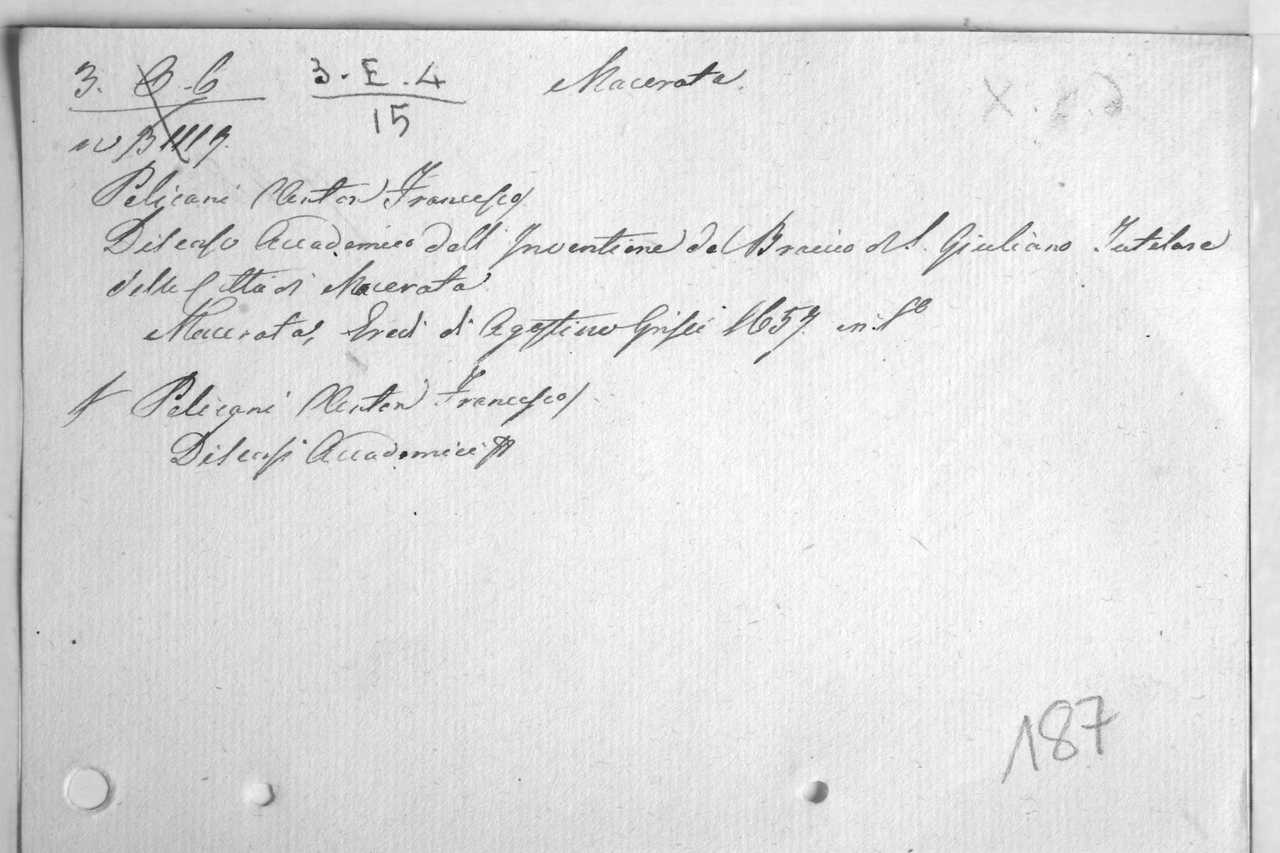 3. B. 6    3. E. 4    Macerata.
15
Pelicani Anton Francesco
Discorso Accademico dell' Inventione del Braccio di S. Giuliano Tutelare
della Città di Macerata
Macerata, Eredi di Agostino Grisei 1657. in f.o
Pelicani Anton Francesco
Discorsi Accademici
187